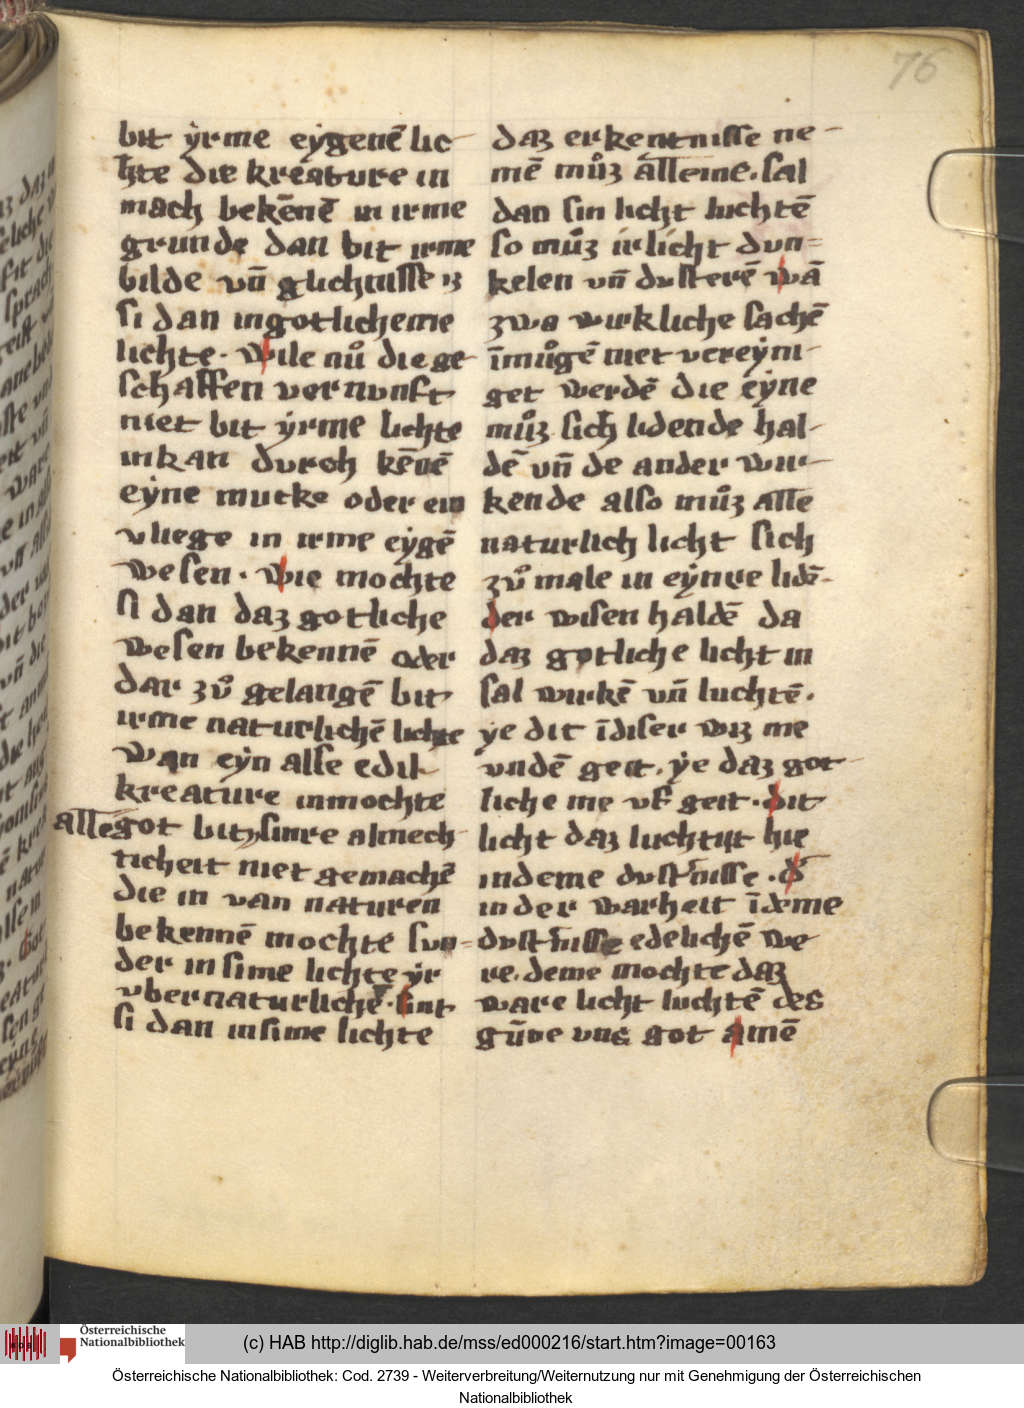 76
bit ẏrme eẏgenē lic-
hte die kreature in
mach bekēnē in irme
grunde dan bit irme
bilde vn̄ glichnisse iz
si dan ingotlicheme
lichte. wile nuͦ die ge-
schaffen vernunft
niet bit ẏrme lichte
inkan durch kēnē
eẏne mucke oder ein
vliege in irme eẏgē
wesen. wie mochte
si dan daz gotliche
wesen bekennē oder
dar zuͦ gelangē bit
irme naturlichē lichte
wan eẏn alse edil
kreature inmochte
alle got bit sinre almech-
ticheit niet gemachē
die in van naturen
bekennē mochte sun-
der in sime lichte ẏr
vbernaturlichē. sint
si dan insime lichte
daz erkentnisse ne-
mē muͦz alleine. sal
dan sin licht luchtē
so muͦz irlicht dun=
kelen vn̄ dusterē wā
zwa wirkliche sachē
īmuͦgē niet vereẏni-
get werdē die eẏne
muͦz sich lidende hal-
dē vn̄ de ander wir-
kende also muͦz alle
naturlich licht sich
zuͦ male in eẏnre lidē-
der wisen haldē da
daz gotliche licht in
sal wirkē vn̄ luchtē.
ẏe dit īdiser wiz me
vndē geit. ẏe daz got-
liche me vf geit. dit
licht daz luchtit hie
indeme dust'nisse. d'
in der warheit īdeme
dust'nisse edelichē we-
re. deme mochte daz
ware licht luchtē des
gūne uns got amē
Österreichische
Nationalbibliothek
(c) HAB http://diglib.hab.de/mss/ed000216/start.htm?image=00163
Österreichische Nationalbibliothek: Cod. 2739 - Weiterverbreitung/Weiternutzung nur mit Genehmigung der Österreichischen
Nationalbibliothek